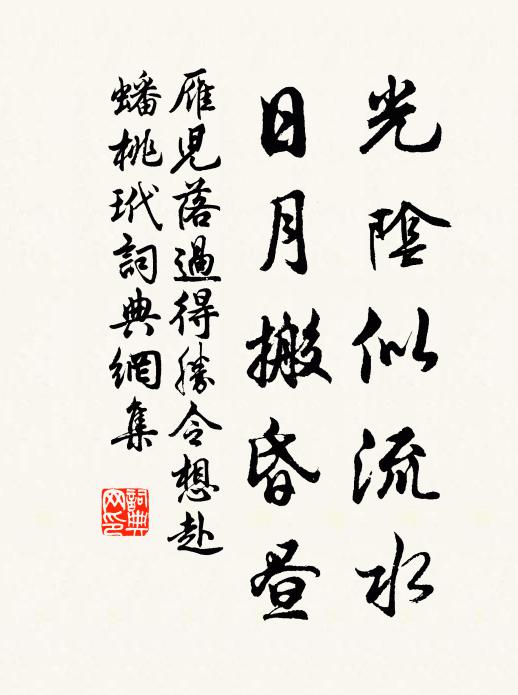 光陰似流水
日月搬昏昼
雁児落過得勝令想赴
蟠桃玳詞典網集
詞典
网印